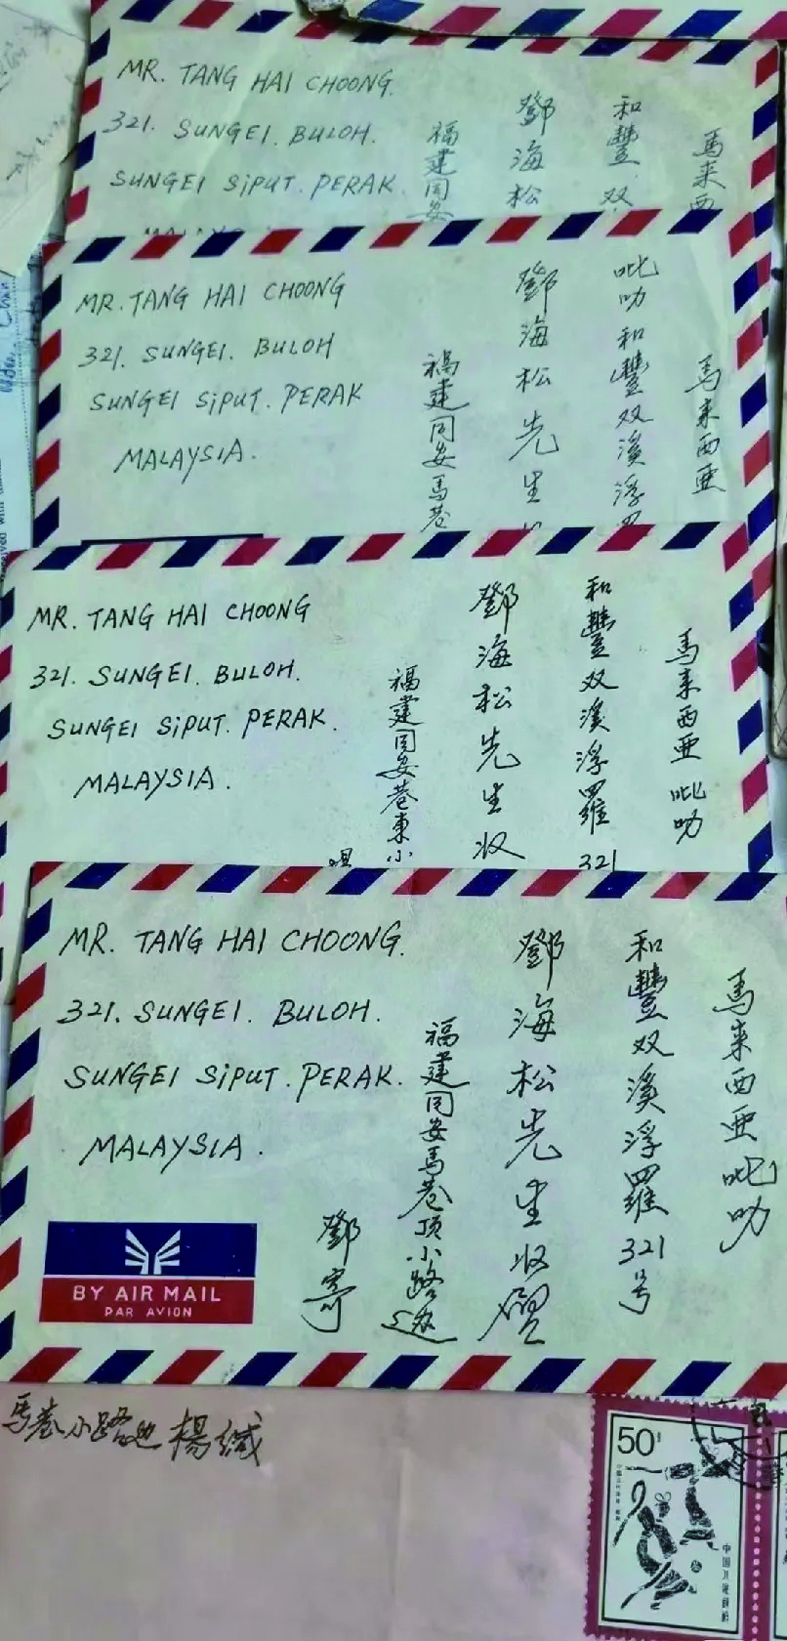 MR. TANG HAI CHOONG.
321. SUNGEI. BULOH.
SUNGEI SiPUT. PERAK.
馬来西
和豐双
鄧海松
福建同安
MR. TANG HAI CHOONG
321. SUNGEI. BULOH
SUNGEI SiPUT. PERAK
MALAYSIA.
馬来西亜
吡叻和豐双溪浮
鄧海松先生
福建同安馬巷
MR. TANG HAI CHOONG
321. SUNGEI. BULOH.
SUNGEI SiPUT. PERAK.
MALAYSIA.
馬来西亜吡叻
和豐双溪浮羅321
鄧海松先生收
福建同安巷東小
MR. TANG HAI CHOONG.
321. SUNGEI. BULOH.
SUNGEI SiPUT. PERAK.
MALAYSIA.
馬来西亜吡叻
和豐双溪浮羅321号
鄧海松先生收啓
福建同安馬巷頂小路边
鄧寄
BY AIR MAIL
PAR AVION
馬巷小路边楊緘
50分